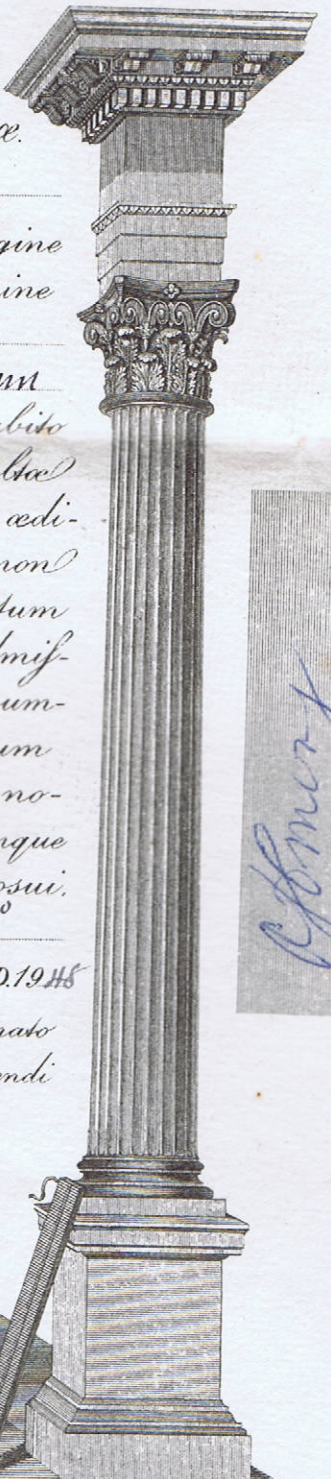 æ.
gine
ine
um
bito
ltæ
ædi-
non
tum
mis-
um-
um
no-
nque
osui.
o
D. 1948
nato
endi